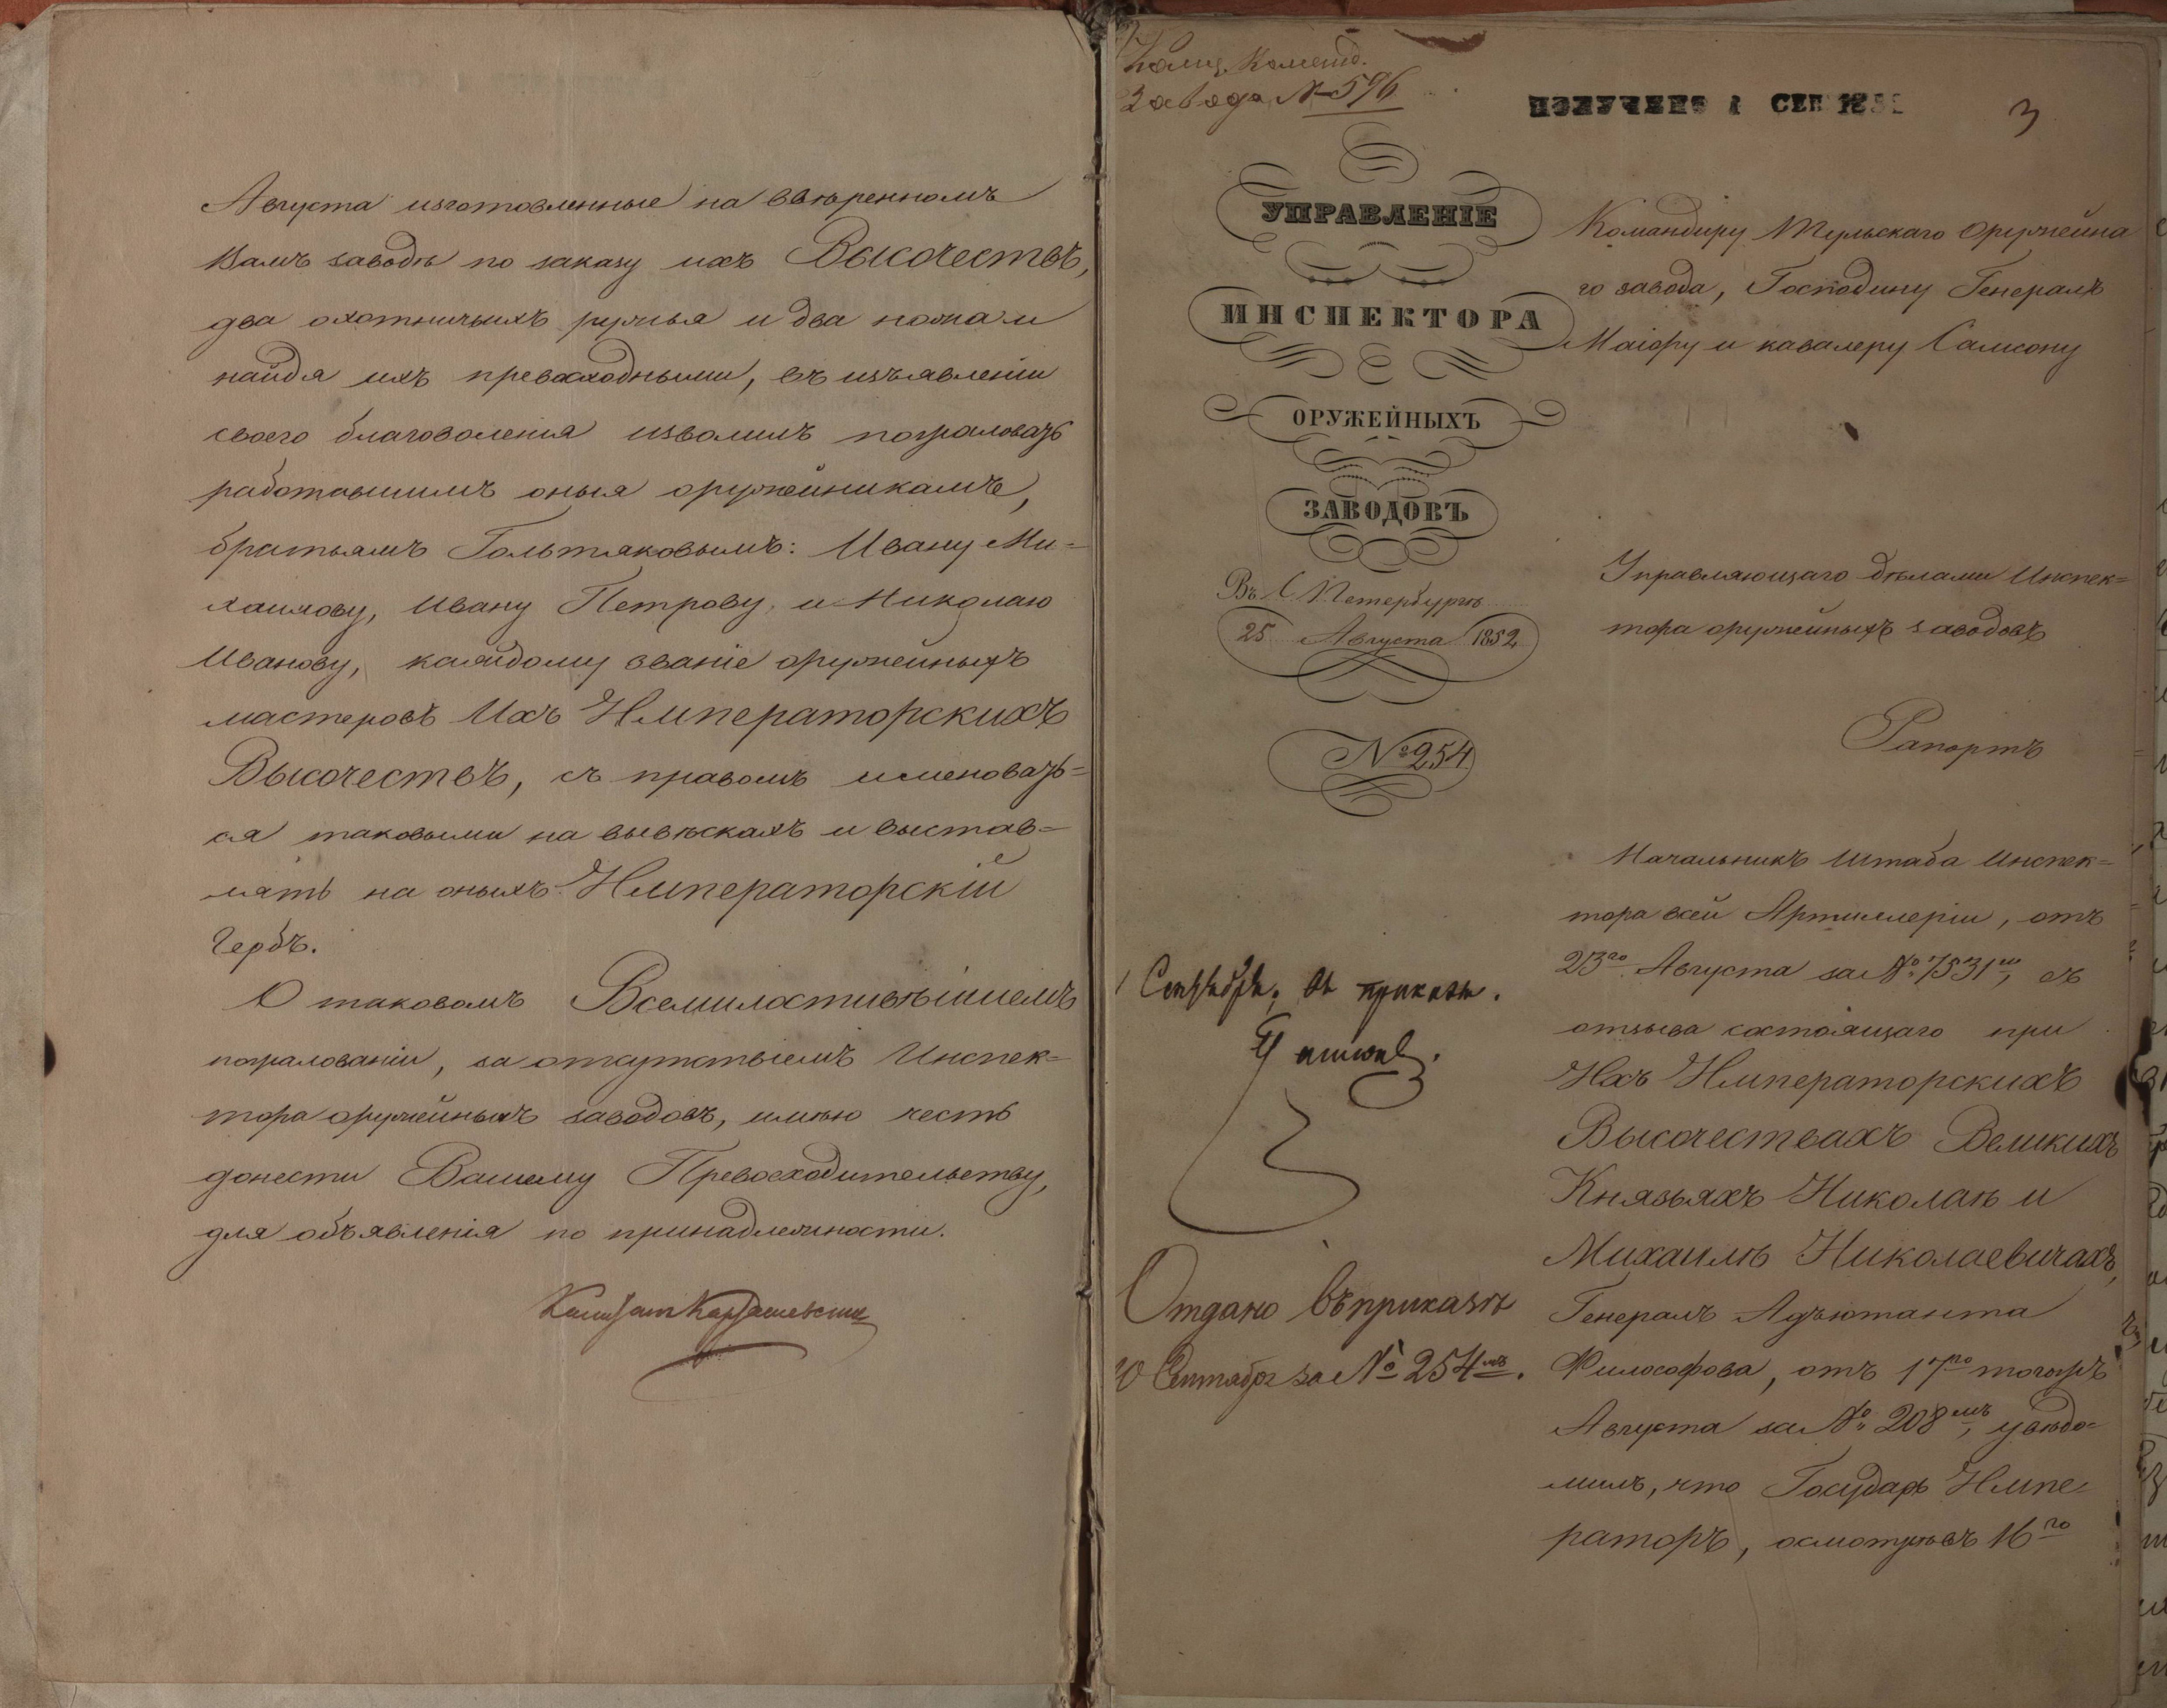 Августа изготовленные на ввѣренномъ
Вамъ заводѣ по заказу ихъ Высочествъ,
два охотничьихъ ружья и два ножа и
найдя ихъ превосходными, въ изъявленіи
своего благоволенія изволилъ пожаловать
работавшимъ оныя оружейникамъ,
братьямъ Гольтяковымъ: Ивану Ми=
хайлову, Ивану Петрову, и Николаю
Иванову, каждому званіе оружейныхъ
мастеровъ Ихъ Императорскихъ
Высочествъ, съ правомъ именовать=
ся таковыми на вывѣскахъ и выстав=
лять на оныхъ Императорскій
Гербъ.
О таковомъ Всемилостивѣйшемъ
пожалованіи, за отсутствіемъ Инспек=
тора оружейныхъ заводовъ, имѣю честь
донести Вашему Превосходительству,
для объявленія по принадлежности.
Завода № 596
ПОЛУЧЕНО 1 СЕН 185
3
УПРАВЛЕНІЕ
ИНСПЕКТОРА
ОРУЖЕЙНЫХЪ
ЗАВОДОВЪ
Въ С. Петербургѣ
25 Августа 1852
№ 254
1 Сентября, въ приказъ.
Отдано въ приказѣ
10 Сентября за № 254мъ.
Командиру Тульскаго Оружейна
го завода, Господину Генералъ
Маіору и кавалеру Самсону
Управляющаго дѣлами Инспек=
тора оружейныхъ заводовъ
Рапортъ
Начальникъ Штаба Инспек=
тора всей Артиллеріи, отъ
23го Августа за № 7531мъ, съ
отзыва состоящаго при
Ихъ Императорскихъ
Высочествахъ Великихъ
Князьяхъ Николаѣ и
Михаилѣ Николаевичахъ,
Генералъ Адъютанта
Философова, отъ 17го тогожъ
Августа за № 208мъ, увѣдо=
милъ, что Государь Импе=
раторъ, осмотрѣвъ 16го